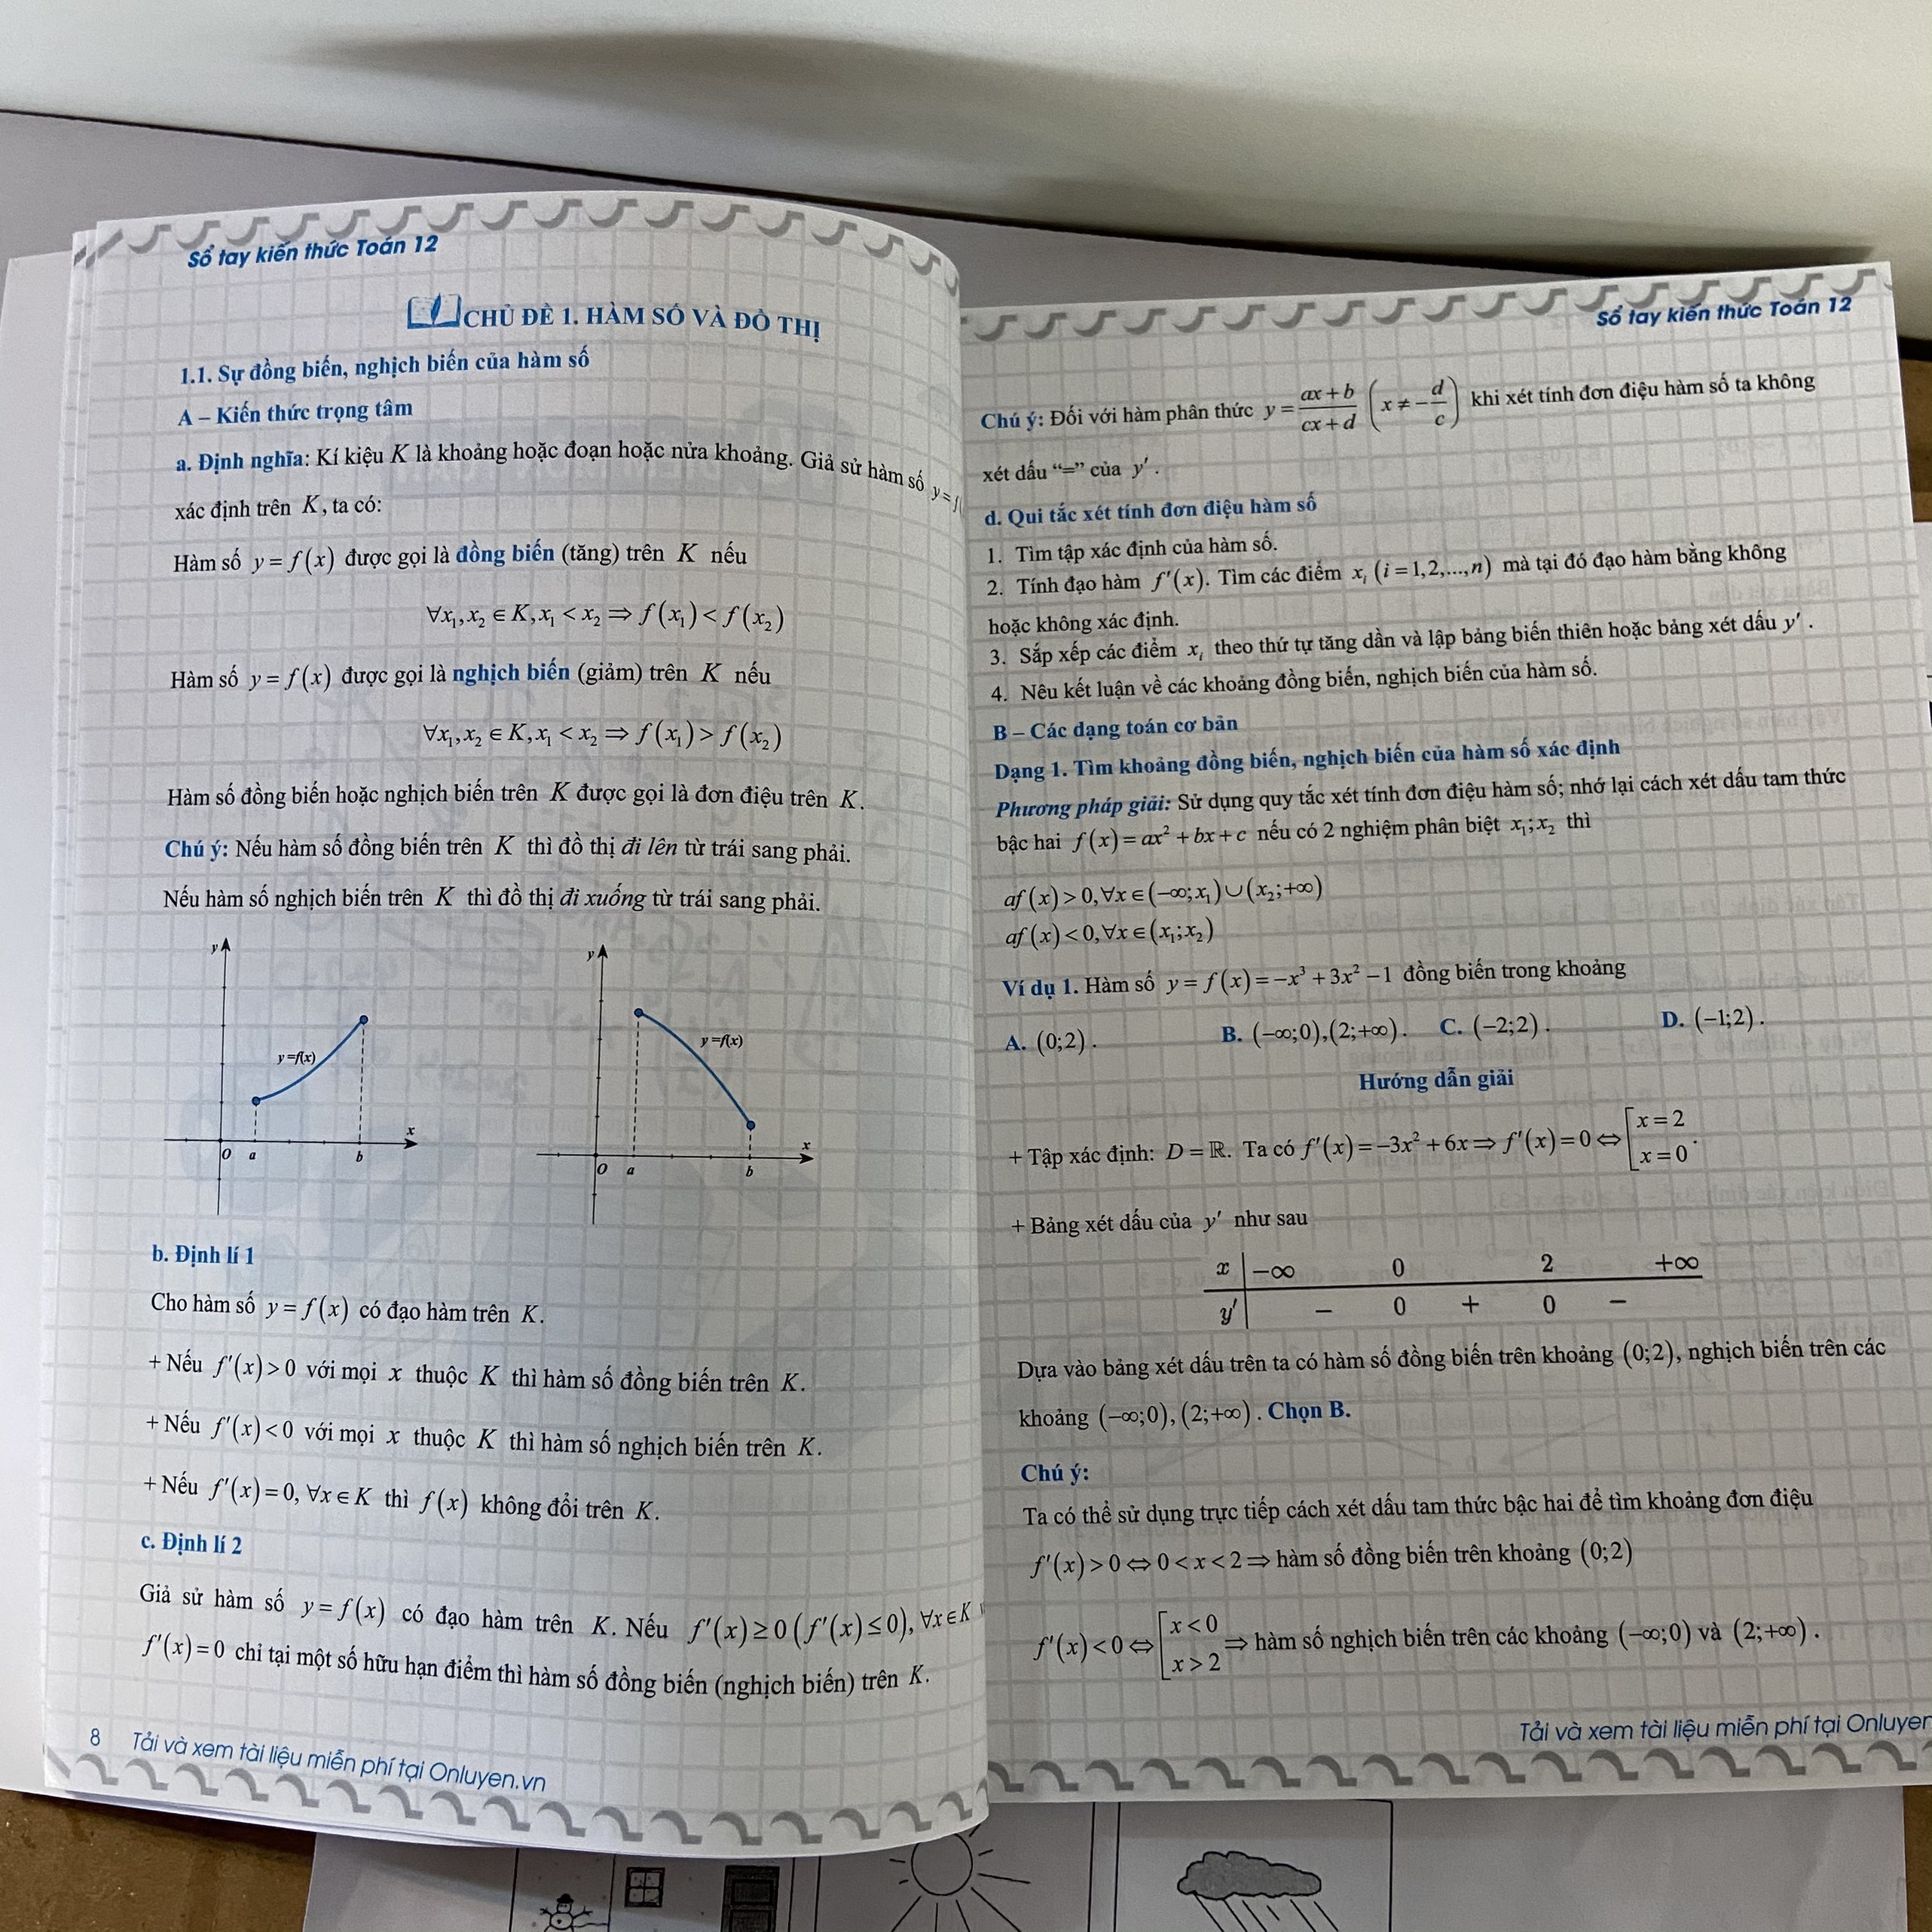 Sổ tay kiến thức Toán 12
CHỦ ĐỀ 1. HÀM SỐ VÀ ĐỒ THỊ
1.1. Sự đồng biến, nghịch biến của hàm số
A – Kiến thức trọng tâm
a. Định nghĩa: Kí kiệu K là khoảng hoặc đoạn hoặc nửa khoảng. Giả sử hàm số y = f(
xác định trên K, ta có:
Hàm số y = f(x) được gọi là đồng biến (tăng) trên K nếu
∀x₁,x₂ ∈ K, x₁ < x₂ ⇒ f(x₁) < f(x₂)
Hàm số y = f(x) được gọi là nghịch biến (giảm) trên K nếu
∀x₁,x₂ ∈ K, x₁ < x₂ ⇒ f(x₁) > f(x₂)
Hàm số đồng biến hoặc nghịch biến trên K được gọi là đơn điệu trên K.
Chú ý: Nếu hàm số đồng biến trên K thì đồ thị đi lên từ trái sang phải.
Nếu hàm số nghịch biến trên K thì đồ thị đi xuống từ trái sang phải.
y
y=f(x)
x
O a b
y
y=f(x)
x
O a b
b. Định lí 1
Cho hàm số y = f(x) có đạo hàm trên K.
+ Nếu f'(x) > 0 với mọi x thuộc K thì hàm số đồng biến trên K.
+ Nếu f'(x) < 0 với mọi x thuộc K thì hàm số nghịch biến trên K.
+ Nếu f'(x) = 0, ∀x ∈ K thì f(x) không đổi trên K.
c. Định lí 2
Giả sử hàm số y = f(x) có đạo hàm trên K. Nếu f'(x) ≥ 0 (f'(x) ≤ 0), ∀x ∈ K
f'(x) = 0 chỉ tại một số hữu hạn điểm thì hàm số đồng biến (nghịch biến) trên K.
8 Tải và xem tài liệu miễn phí tại Onluyen.vn
Sổ tay kiến thức Toán 12
Chú ý: Đối với hàm phân thức y = (ax+b)/(cx+d) (x ≠ −d/c) khi xét tính đơn điệu hàm số ta không
xét dấu “=” của y'.
d. Qui tắc xét tính đơn điệu hàm số
1. Tìm tập xác định của hàm số.
2. Tính đạo hàm f'(x). Tìm các điểm xᵢ (i = 1,2,...,n) mà tại đó đạo hàm bằng không
hoặc không xác định.
3. Sắp xếp các điểm xᵢ theo thứ tự tăng dần và lập bảng biến thiên hoặc bảng xét dấu y'.
4. Nêu kết luận về các khoảng đồng biến, nghịch biến của hàm số.
B – Các dạng toán cơ bản
Dạng 1. Tìm khoảng đồng biến, nghịch biến của hàm số xác định
Phương pháp giải: Sử dụng quy tắc xét tính đơn điệu hàm số; nhớ lại cách xét dấu tam thức
bậc hai f(x) = ax² + bx + c nếu có 2 nghiệm phân biệt x₁; x₂ thì
af(x) > 0, ∀x ∈ (−∞; x₁) ∪ (x₂; +∞)
af(x) < 0, ∀x ∈ (x₁; x₂)
Ví dụ 1. Hàm số y = f(x) = −x³ + 3x² − 1 đồng biến trong khoảng
A. (0;2). B. (−∞;0),(2;+∞). C. (−2;2). D. (−1;2).
Hướng dẫn giải
+ Tập xác định: D = ℝ. Ta có f'(x) = −3x² + 6x ⇒ f'(x) = 0 ⇔ [x = 2
x = 0.
+ Bảng xét dấu của y' như sau
x −∞ 0 2 +∞
y' − 0 + 0 −
Dựa vào bảng xét dấu trên ta có hàm số đồng biến trên khoảng (0;2), nghịch biến trên các
khoảng (−∞;0),(2;+∞). Chọn B.
Chú ý:
Ta có thể sử dụng trực tiếp cách xét dấu tam thức bậc hai để tìm khoảng đơn điệu
f'(x) > 0 ⇔ 0 < x < 2 ⇒ hàm số đồng biến trên khoảng (0;2)
f'(x) < 0 ⇔ [x < 0
x > 2 ⇒ hàm số nghịch biến trên các khoảng (−∞;0) và (2;+∞).
Tải và xem tài liệu miễn phí tại Onluyen